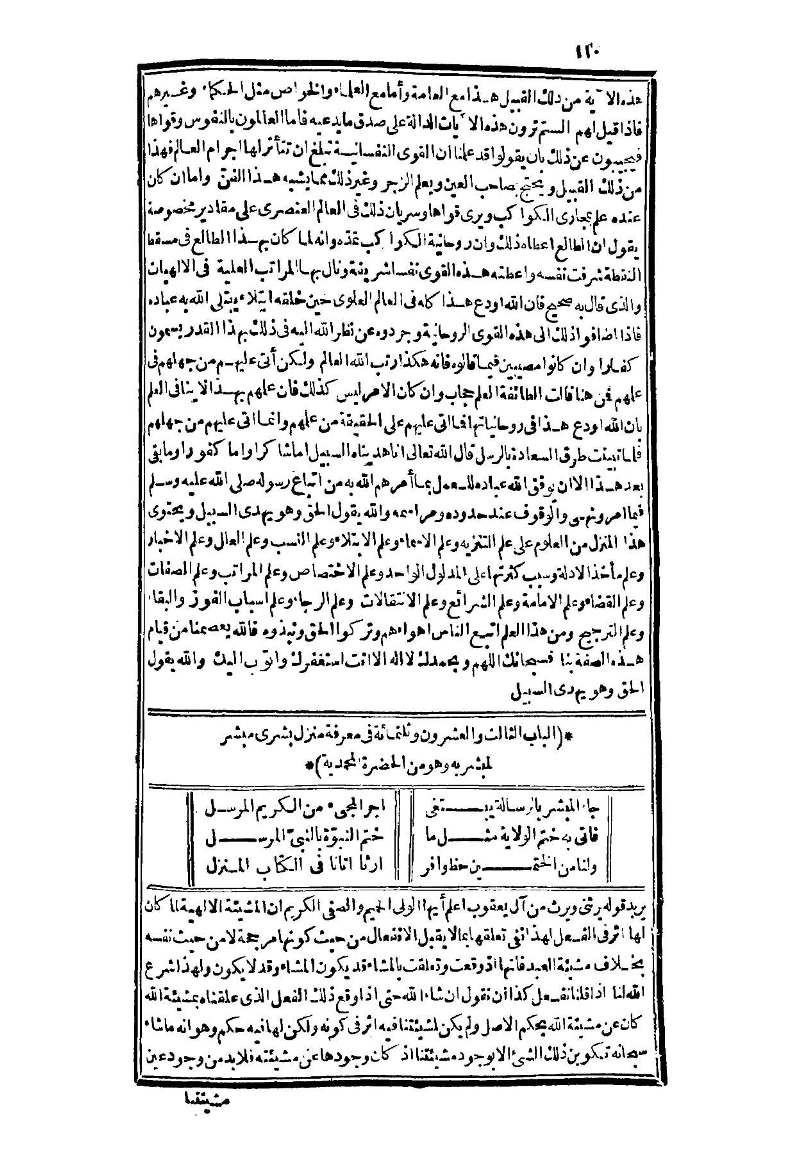 ١٢٠
هذه الآية من ذلك القبيل هذا مع العامة وأما مع العلماء والخواص مثل الحكماء وغيرهم
فاذا قيل لهم ألستم ترون هذه الآيات الدالة على صدق ما يدعيه فاما العالمون بالنفوس وقواها
فيجيبون عن ذلك بان يقولوا قد علمنا ان القوى النفسانية تبلغ ان تتأثر لها اجرام العالم فهذا
من ذلك القبيل ويحتج بصاحب العين وبعلم الزجر وغير ذلك مما يشبه هذا الفن واما ان كان
عنده علم بمجارى الكواكب ويرى قواها وسريان ذلك فى العالم العنصرى على مقادير مخصوصة
يقول ان الطالع اعطاه ذلك وان روحانية الكواكب تمده وانه لما كان بهذا الطالع فى مسقط
النقطة شرفت نفسه واعطته هذه القوى نفسا شريفة ونال بها المراتب العلية فى الالهيات
والذى قال به صحيح فان الله اودع هذا كله فى العالم العلوى حين خلقه ابتلاء يبتلى الله به عباده
فاذا اضافوا ذلك الى هذه القوى الروحانية وجردوه عن نظر الله اليه فى ذلك بهذا القدر يسمون
كفارا وان كانوا مصيبين فيما قالوه فانه هكذا رتب الله العالم ولكن أتى عليهم من جهلهم فى
علمهم فمن هنا قالت الطائفة العلم حجاب وان كان الامر ليس كذلك فان علمهم بهذا لا ينافى العلم
بان الله اودع هذا فى روحانياتها فما اتى عليهم على الحقيقة من علمهم وانما اتى عليهم من جهلهم
فلما تبينت طرق السعادة بالرسل قال الله تعالى انا هديناه السبيل اما شاكرا واما كفورا وما بقى
بعد هذا الا ان يوفق الله عباده للعمل بما أمرهم الله به من اتباع رسوله صلى الله عليه وسلم
فيما امر ونهى والوقوف عند حدوده ومراسمه والله يقول الحق وهو يهدى السبيل ويحتوى
هذا المنزل من العلوم على علم التنزيه وعلم الاسماء وعلم الابتلاء وعلم النسب وعلم العال وعلم الاخبار
وعلم مأخذ الادلة وسبب كثرتها على المدلول الواحد وعلم الاختصاص وعلم المراتب وعلم الصفات
وعلم القضاء وعلم الامامة وعلم الشرائع وعلم الانتقالات وعلم الرجاء وعلم اسباب الفوز والبقاء
وعلم الترجيح ومن هذا العلم اتبع الناس اهواءهم وتركوا الحق ونبذوه فالله يعصمنا من قيام
هذه الصفة بنا فسبحانك اللهم وبحمدك لا اله الا انت استغفرك واتوب اليك والله يقول
الحق وهو يهدى السبيل
*(الباب الثالث والعشرون وثلثمائة فى معرفة منزل بشرى مبشر
لمبشر به وهو من الحضرة المحمدية)*
جاء المبشر بالرسالة يبتغى اجر المجىء من الكريم المرسل
فاتى به ختم الولاية مثل ما ختم النبوّة بالنبىّ المرسل
ولنا من الختمين حظ وافر ارثا اتانا فى الكتاب المنزل
يريد قوله يرثنى ويرث من آل يعقوب اعلم أيها الولى الحميم والصفى الكريم ان المشيئة الالهية لما كان
لها اثر فى الفعل لهذا اثنى تعلقها بما لا يقبل الانفعال من حيث كونها مرجحة لا من حيث نفسه
بخلاف مشيئة العبد فانها اذ وقعت وتعلقت بالمشاء قد يكون المشاء وقد لا يكون ولهذا شرع
الله لنا اذا قلنا نفعل كذا أن نقول ان شاء الله حتى اذا وقع ذلك الفعل الذى علقناه بمشيئة الله
كان عن مشيئة الله بحكم الاصل ولم يكن لمشيئتنا فيه اثر فى كونه ولكن لها فيه حكم وهو انه ما شاء
سبحانه تكوين ذلك الشئ الا بوجود مشيئتنا اذ كان وجودها عن مشيئته فلا بد من وجود عين
مشيئتنا